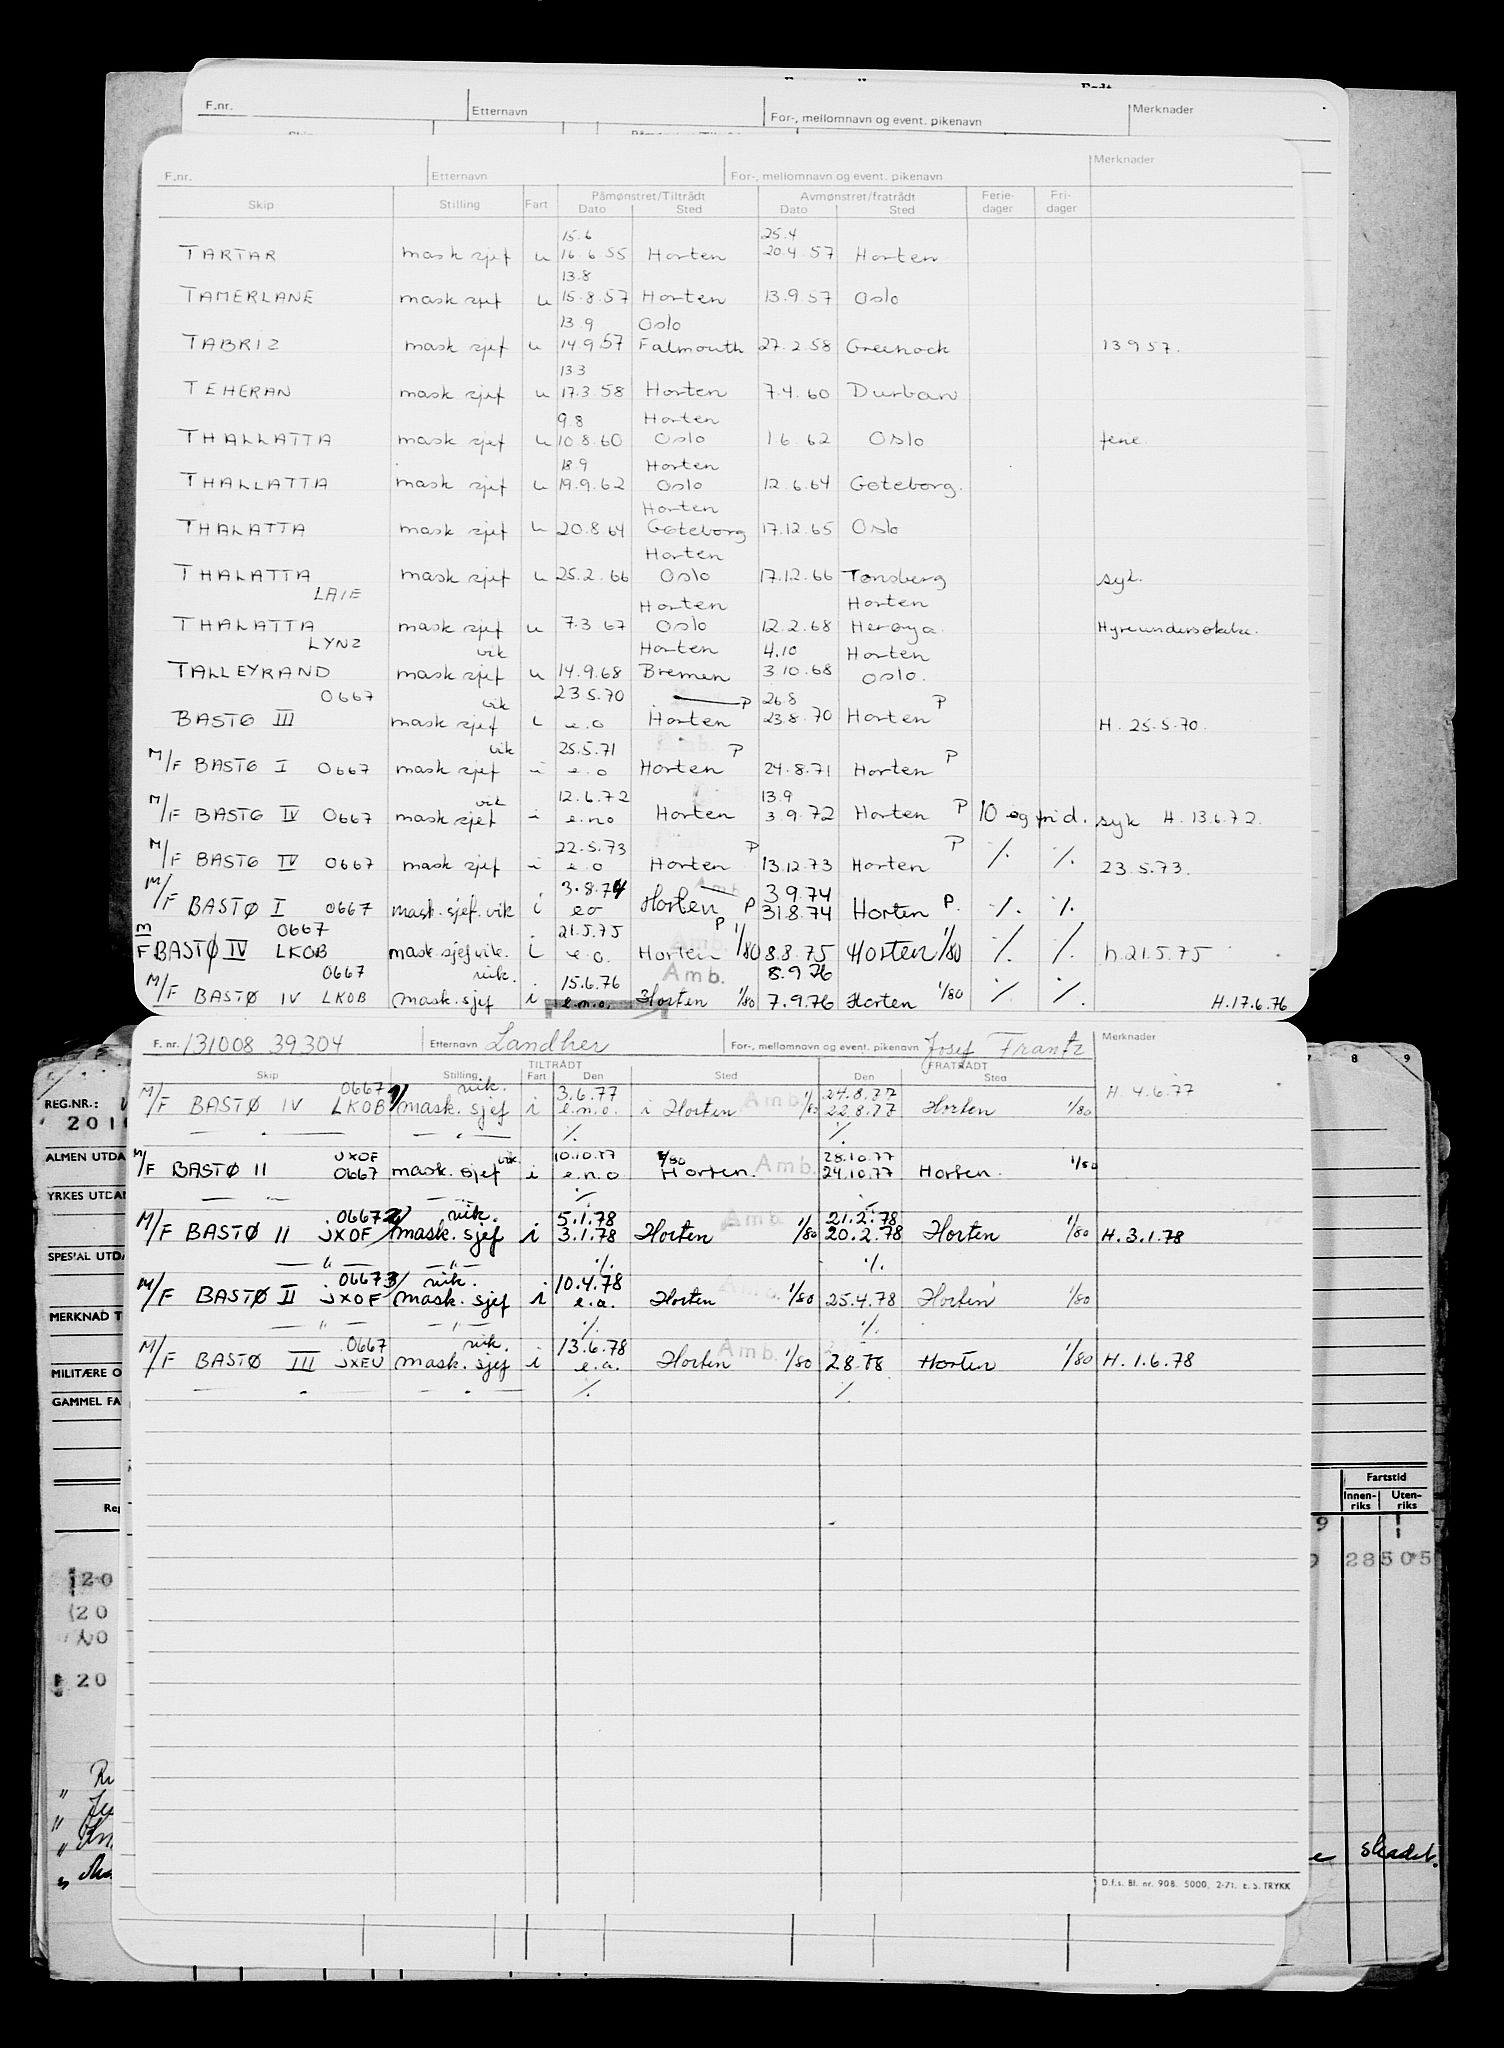 F.nr. Etternavn For-, mellomnavn og event. pikenavn Merknader
F.nr. Etternavn For-, mellomnavn og event. pikenavn Merknader
Skip Stilling Fart Påmønstret/Tiltrådt Dato Sted Avmønstret/fratrådt Dato Sted Ferie-dager Fri-dager
15.6 25.4
TARTAR mask sjef u 16.6.55 Horten 20.4.57 Horten
13.8
TAMERLANE mask sjef u 15.8.57 Horten 13.9.57 Oslo
13.9 Oslo
TABRIZ mask sjef u 14.9.57 Falmouth 27.2.58 Greenock 13 9 57.
13.3
TEHERAN mask sjef u 17.3.58 Horten 7.4.60 Durban
9.8 Horten
THALLATTA mask sjef u 10.8.60 Oslo 1.6.62 Oslo ferie.
18.9 Horten
THALLATTA mask sjef u 19.9.62 Oslo 12.6.64 Göteborg.
Horten
THALATTA mask sjef u 20.8.64 Göteborg 17.12.65 Oslo
Horten
THALATTA mask sjef u 25.2.66 Oslo 17.12.66 Tønsberg syk.
LAIE Horten Horten
THALATTA mask sjef u 7.3 67 Oslo 12.2.68 Herøya. Hyreundersøkelse.
LYNZ vik Horten 4.10 Horten
TALLEYRAND mask sjef u 14.9.68 Bremen 3 10.68 Oslo.
0667 vik 23.5.70 P 26.8 P
BASTØ III mask sjef i e.o Horten 23.8.70 Horten H. 25.5.70.
vik 25.5.71 P P
M/F BASTØ I 0667 mask sjef i e.o Horten 24.8.71 Horten
vik 12.6.72 13.9
M/F BASTØ IV 0667 mask sjef i e.no Horten 3.9.72 Horten P 10 og frid. syk H. 13.6.72.
22.5.73 P P
M/F BASTØ IV 0667 mask sjef i e.o Horten 13.12.73 Horten ./. ./. 23.5.73.
3.8.74 Amb. 3.9.74
M/F BASTØ I 0667 mask. sjef. vik i eo Horten P 31.8.74 Horten P. ./. ./.
0667 21.5.75 P
M/F BASTØ IV LKOB mask.sjef vik. i e.o. Horten 1/80 8.8.75 Horten 1/80 ./. ./. h.21.5.75
0667 vik. 15.6.76 Amb. 8.9.76
M/F BASTØ IV LKOB mask.sjef i e.n.o. Horten 1/80 7.9.76 Horten 1/80 ./. ./. H.17.6.76
F. nr. 131008 39304 Etternavn Landher For-, mellomnavn og event. pikenavn Josef Frantz Merknader
Skip Stilling TILTRÅDT Fart Den Sted FRATRÅDT Den Sted
0667 vik. 3.6.77 Amb. 24.8.77 H. 4.6.77
M/F BASTØ IV LKOB mask. sjef i e.n.o. i Horten 1/80 22.8.77 Horten 1/80
— " — — " — ./. ./.
JXOF vik 10.10.77 1/80 28.10.77 1/80
M/F BASTØ II 0667 mask. sjef i e.n.o Horten. Amb. 24.10.77 Horten.
— " — — " — ./. ./.
0667 2/ vik. 5.1.78 Amb. 21.2.78
M/F BASTØ II JXOF mask. sjef i 3.1.78 Horten 1/80 20.2.78 Horten 1/80 H. 3.1.78
— " — — " — ./. ./.
0667 3/ vik. 10.4.78
M/F BASTØ II JXOF mask. sjef i e.a. Horten 1/80 25.4.78 Horten 1/80
— " — — " — ./. ./.
0667 vik. 13.6.78 Amb.
M/F BASTØ III JXEU mask. sjef i e.a. Horten 1/80 2.8.78 Horten 1/80 H. 1.6.78
— " — ./. ./.
D.f.s. Bl. nr. 908. 5000, 2-71. E. S. TRYKK
REG.NR.:
ALMEN UTDA
YRKES UTDAN
SPESIAL UTDA
MERKNAD T
MILITÆRE O
GAMMEL FA
8 9
Fartstid
Innen-riks Uten-riks
9
28505
20
20
20
skadet.